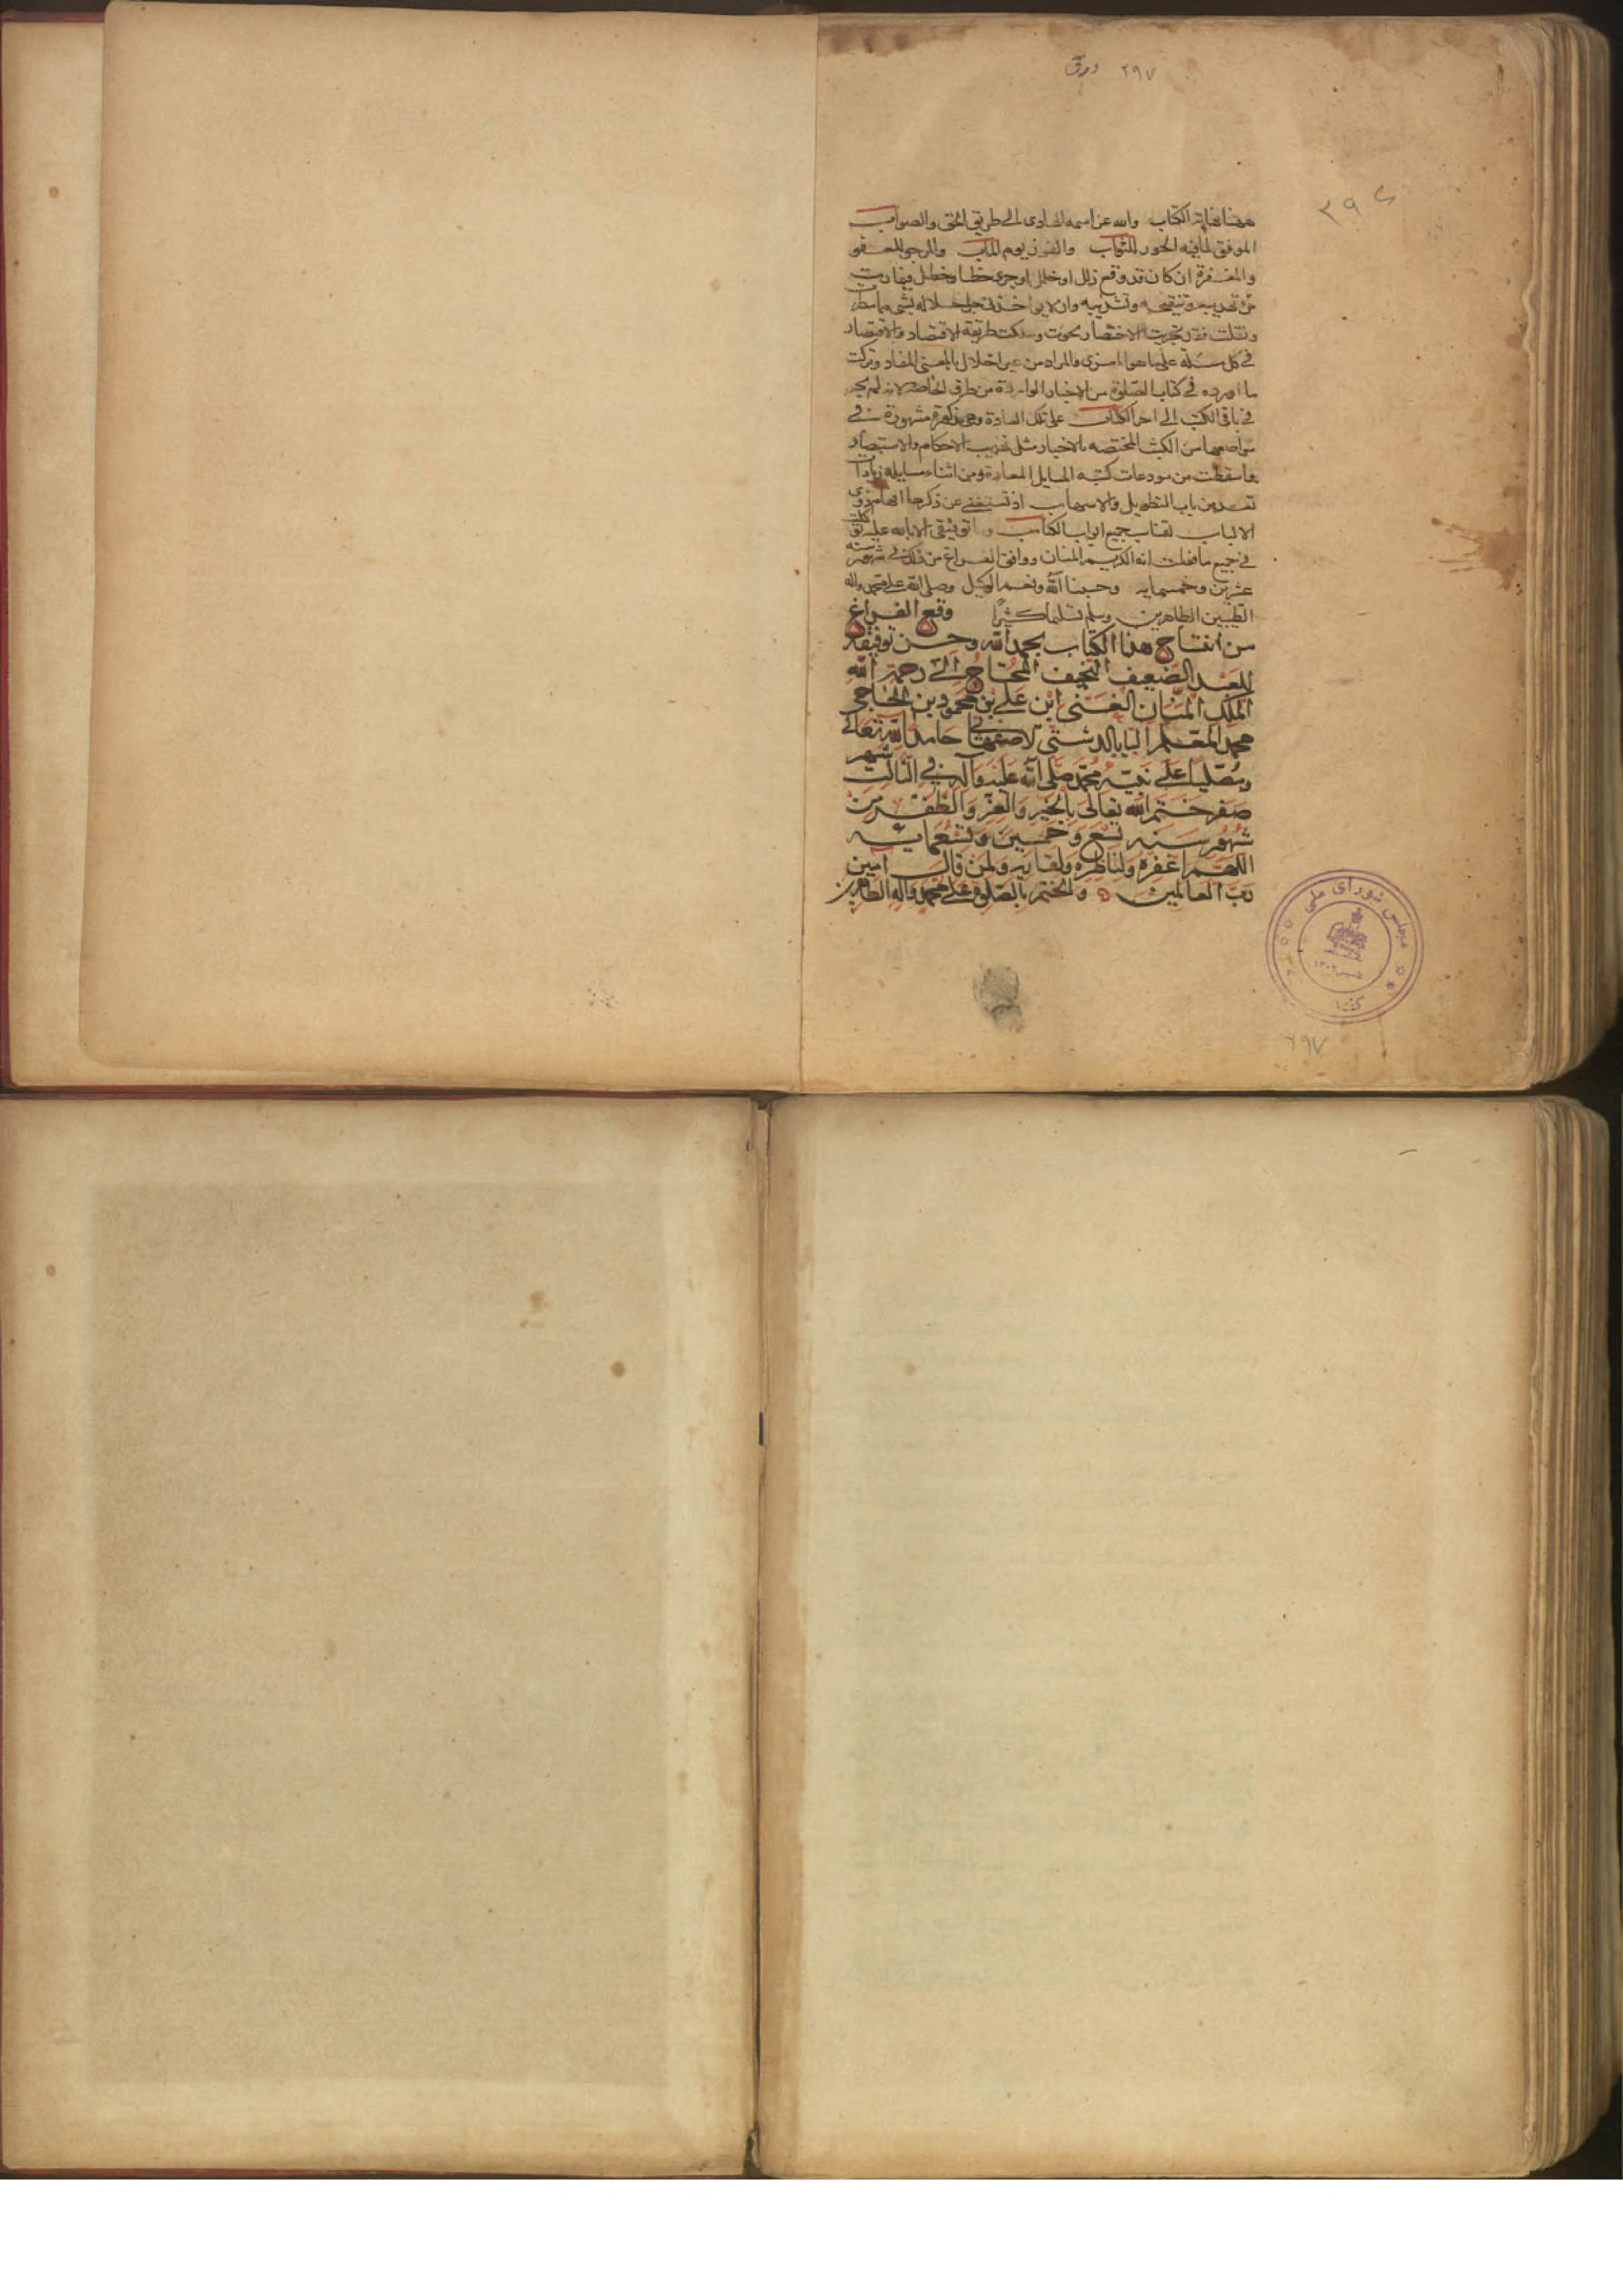 ٢٩٧ ورق
٣٩٤
هذا نهاية الكتاب والله عز اسمه الهادى الى طريق الحق والصواب
الموفق لما فيه الحور للثواب والفوز يوم المآب والمرجى للعفو
والمغفرة ان كان قد وقع زلل او خلل او جرى خطا وخطل
وان لا يواخذنى جل جلاله بشى مما سطرت
ونقلت فقد تحريت الاختصار نحوت وسلكت طريقة الاقتصاد والاقتصار
فى كل مسئلة على ما هو المغزى والمراد من غير اخلال بالمعنى المفاد وتركت
ما اورده فى كتاب الصلوة من الاخبار الواردة من طرق الخاصة لانه لم يجر
فى باقى الكتب الى اخر الكتاب على تلك العادة وهى مذكورة مشهورة فى
مواضعها من الكتب المختصه بالاخبار مثل تهذيب الاحكام والاستبصار
واسقطت من مودعات كتبه المسايل المعادة ومن اثناء مسايله زيادات
تعد من باب التطويل والاسهاب اذ تستغنى عن ذكرها افهام ذوى
الالباب لقناب جميع ابواب الكتاب وما توفيقى الا بالله عليه توكلت
فى جميع ما فعلت انه الكريم المنان ووافق الفراغ من ذلك فى شهور سنه
عشرين وخمسمايه وحسبنا الله ونعم الوكيل وصلى الله على محمد واله
الطيبين الطاهرين وسلم تسليما كثيرا وقع الفراغ
من انتساخ هذا الكتاب بحمد الله وحسن توفيقه
للعبد الضعيف النحيف المحتاج الى رحمة الله
الملك المنان الغنى ابن على بن محمود بن الحاجى
محمد المعلم البابا الدشتى الاصفهانى حامدا لله تعالى
ومصليا على نبيه محمد صلى الله عليه وآله فى الثالث شهر
صفر ختم الله تعالى بالخير والعز والظفر من
شهور سنه تسع وخمسين وتسعمائه
اللهم اغفره ولناظره ولقاريه ولمن قال امين
رب العالمين والختم بالصلوة على محمد وآله الطاهرين
مجلس شورای ملی
کتابخانه
٢٩٧